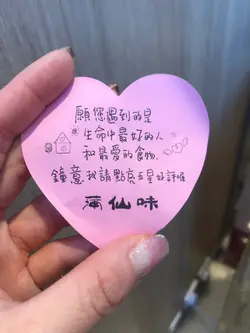 願您遇到的是
生命中最好的人
和最愛的食物.
鐘意我請點亮五星好評喔
蒲仙味